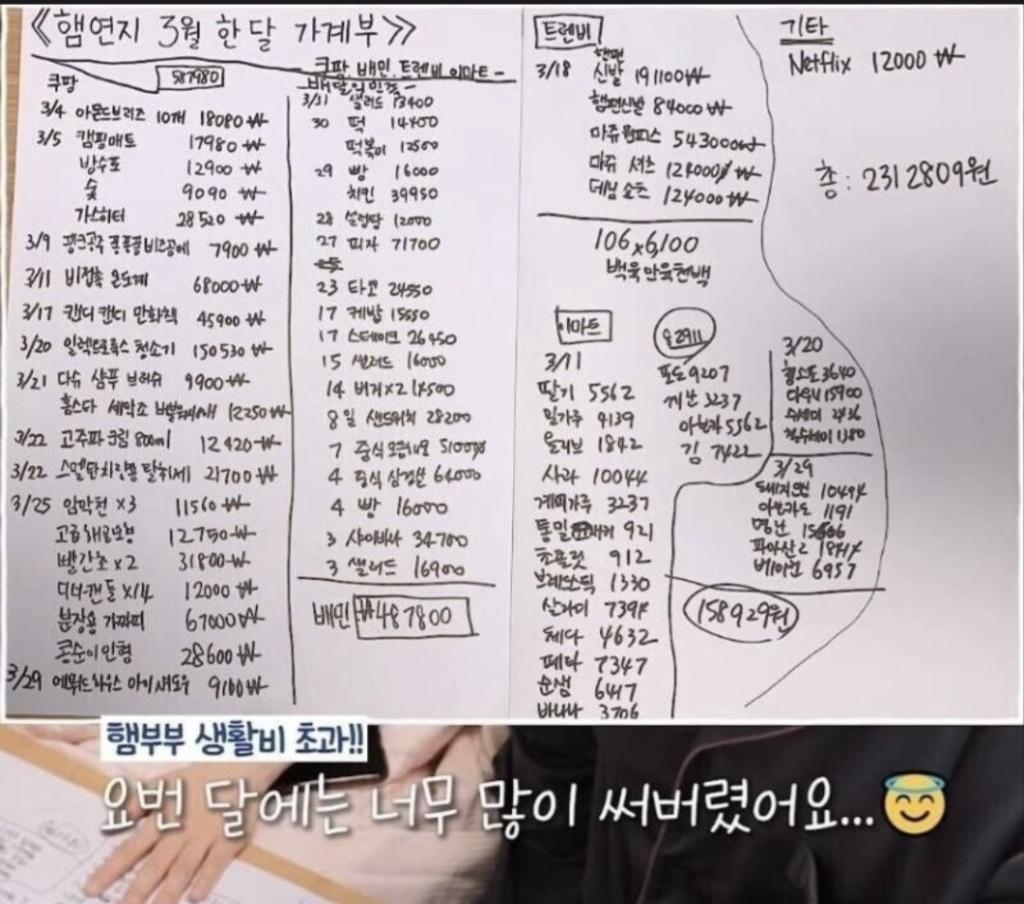 《햄연지 3월 한달 가계부》
쿠팡 587980
3/4 아몬드브리즈 10개 18080₩
3/5 캠핑매트 17980₩
방수포 12900₩
숯 9090₩
가스히터 28520₩
3/9 핑크공주 퐁퐁퐁비즈공예 7900₩
3/11 비접촉 온도계 68000₩
3/17 캔디캔디 만화책 45900₩
3/20 일렉트로룩스 청소기 150530₩
3/21 다슈 샴푸 브러쉬 9900₩
홈스타 세탁조 12250₩
3/22 고주파크림 800ml 12420₩
3/22 탈취제 21700₩
3/25 암막천 ×3 11560₩
고급 12750₩
빨간초 ×2 31800₩
디너캔들 ×14 12000₩
분장용 67000₩
콩순이인형 28600₩
3/29 에뛰드하우스 아이섀도우 9100₩
- 쿠팡 배민 트렌비 이마트 -
- 배달의민족 -
3/31 샐러드 13400
30 떡 14400
떡볶이 12500
29 빵 16000
치킨 39950
28 설렁탕 12000
27 피자 71700
23 타코 24550
17 케밥 15550
17 스테이크 26450
15 샐러드 16000
14 버거×2 14500
8일 샌드위치 28200
7 중식 51000
4 중식 삼겹살 64000
4 빵 16000
3 34700
3 샐러드 16900
배민 ₩487800
트렌비
3/18 햄편
신발 191100₩
햄편신발 84000₩
마쥬원피스 543000₩
마쥬 셔츠 128000₩
데님쇼츠 124000₩
106×6,100
백육만육천백
이마트
3/11
딸기 5562
밀가루 4139
올리브 1842
사라 10044
계피가루 3237
통밀 921
초플릿 912
브레드스틱 1330
실가이 7394
체다 4632
페타 7347
순샘 6417
바나나 3706
요2911
포도 9207
깨찬 3237
아보카도 5562
김 7422
3/20
3640
다우니 15900
수세미 2436
1380
3/29
10494
아보카도 1191
명란 15606
18414
베이컨 6957
158929원
기타
Netflix 12000₩
총 : 2312809원
햄부부 생활비 초과!!
요번 달에는 너무 많이 써버렸어요...